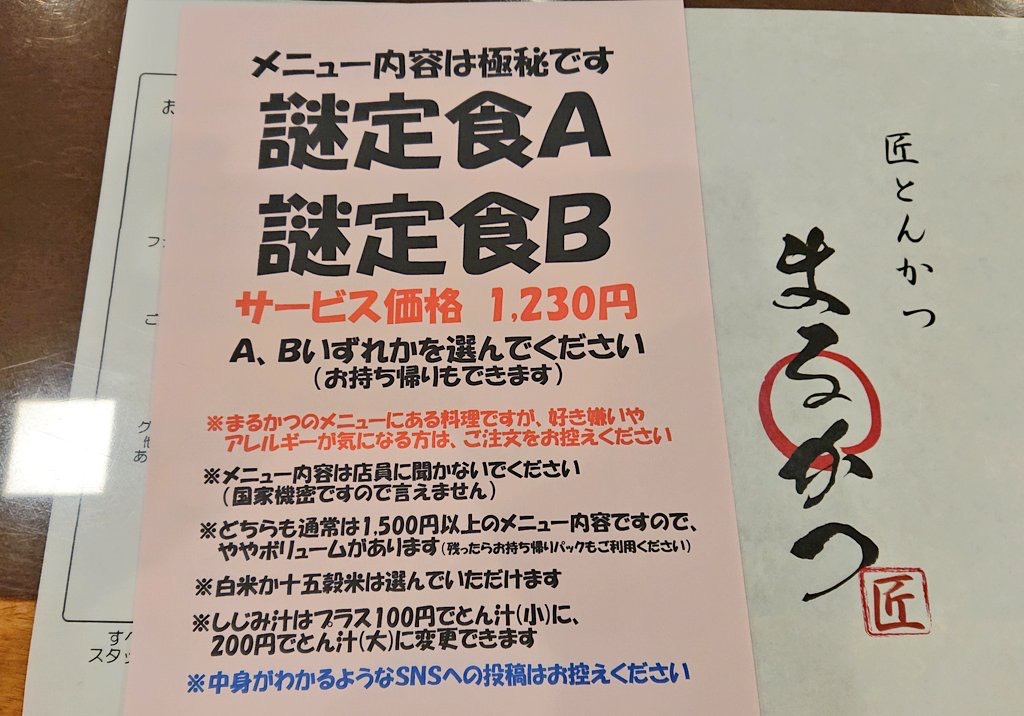 メニュー内容は極秘です
謎定食A
謎定食B
サービス価格 1,230円
A、Bいずれかを選んでください
（お持ち帰りもできます）
※まるかつのメニューにある料理ですが、好き嫌いや
アレルギーが気になる方は、ご注文をお控えください
※メニュー内容は店員に聞かないでください
（国家機密ですので言えません）
※どちらも通常は1,500円以上のメニュー内容ですので、
ややボリュームがあります（残ったらお持ち帰りパックもご利用ください）
※白米か十五穀米は選んでいただけます
※しじみ汁はプラス100円でとん汁（小）に、
200円でとん汁（大）に変更できます
※中身がわかるようなSNSへの投稿はお控えください
匠とんかつ
まるかつ
匠
お
フ
ご
グ
他
あ
すべ
スタッ